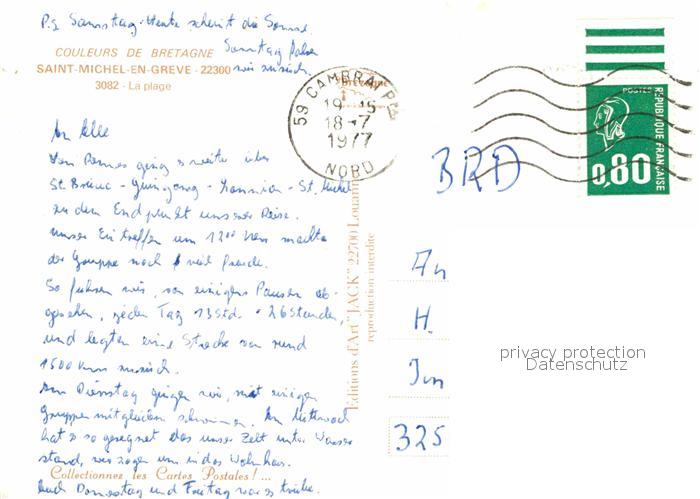 P.S Samstag. Heute scheint die Sonne.
Sonntag fahren
wir zurück.
COULEURS DE BRETAGNE
SAINT-MICHEL-EN-GREVE - 22300
3082 - La plage
59 CAMBRAI
19-15
18-7
1977
NORD
POSTES
RÉPUBLIQUE FRANÇAISE
0,80
An Alle
Von Rennes ging s weiter über
St. Brieuc - Guingamp - Lannion - St. Michel
zu dem Endpunkt unserer Reise.
unser Eintreffen um 12°° Uhr machte
der Gruppe noch viel Freude.
So fuhren wir, von einigen Pausen ab-
gesehen, jeden Tag 13 Std. = 26 Stunden,
und legten eine Strecke von rund
1500 km zurück.
Am Dienstag gingen wir, mit einigen
Gruppenmitgliedern schwimmen. Am Mittwoch
hat s so geregnet das unser Zelt unter Wasser
stand, wir zogen um in das Wohnhaus.
Collectionnez les Cartes Postales ! ...
Auch Donnerstag und Freitag war es trübe.
Editions d'Art "JACK" 22700 Louannec
reproduction interdite
BRD
An
H.
325
privacy protection
Datenschutz